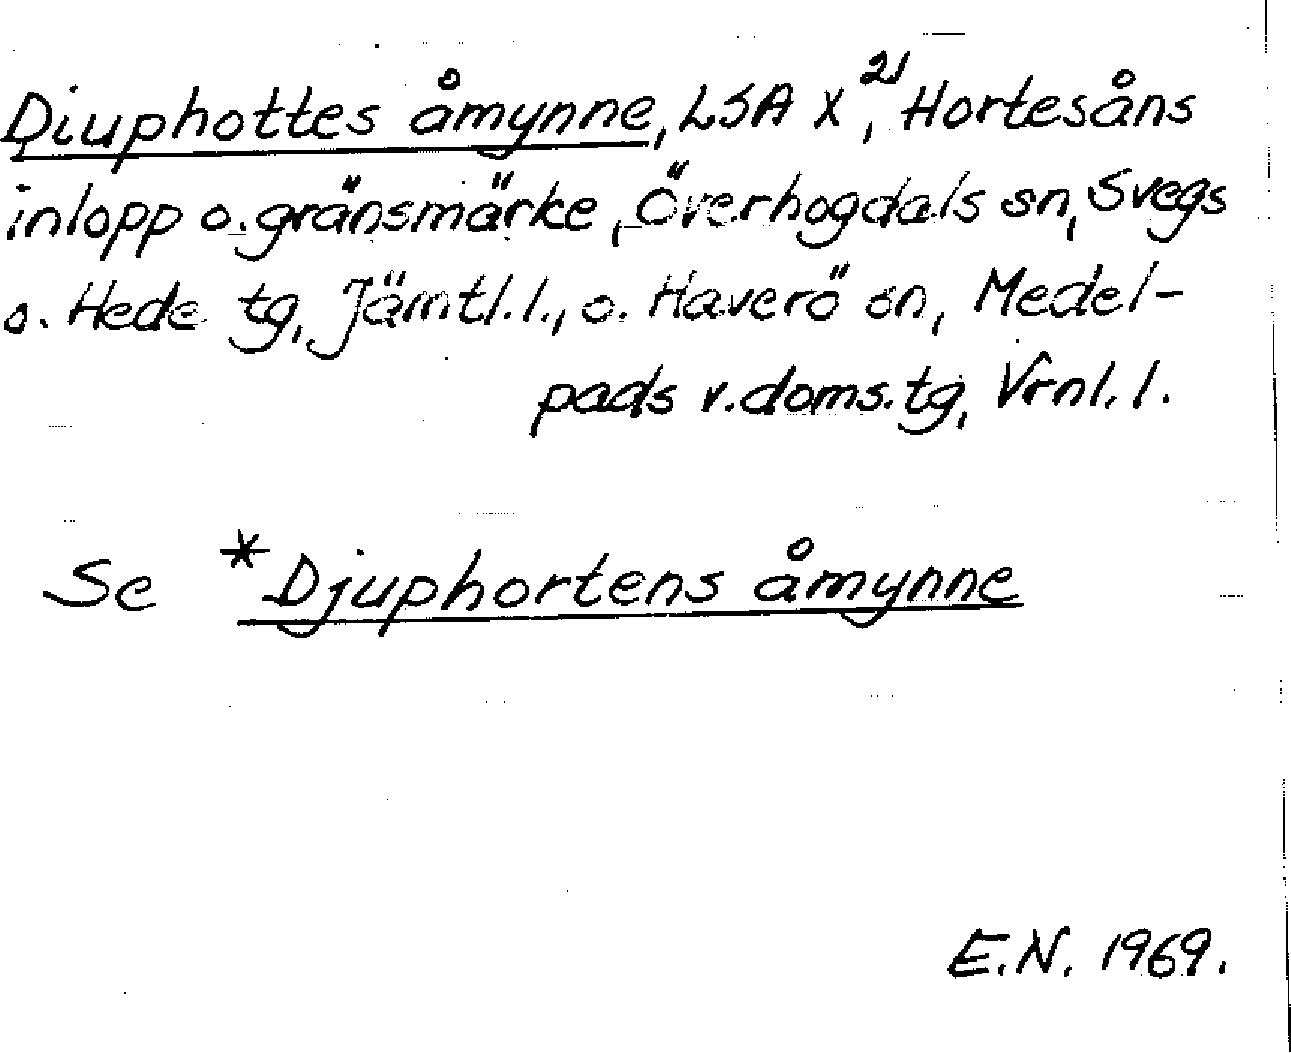 Djuphottes åmynne, LSA X²⁾, Hortesåns
inlopp o. gränsmärke, Överhogdals sn, Svegs
o. Hede tg, Jämtl. l., o. Haverö sn, Medel-
pads v. doms. tg, Vrnl. l.
Se *Djuphortens åmynne
E.N. 1969.